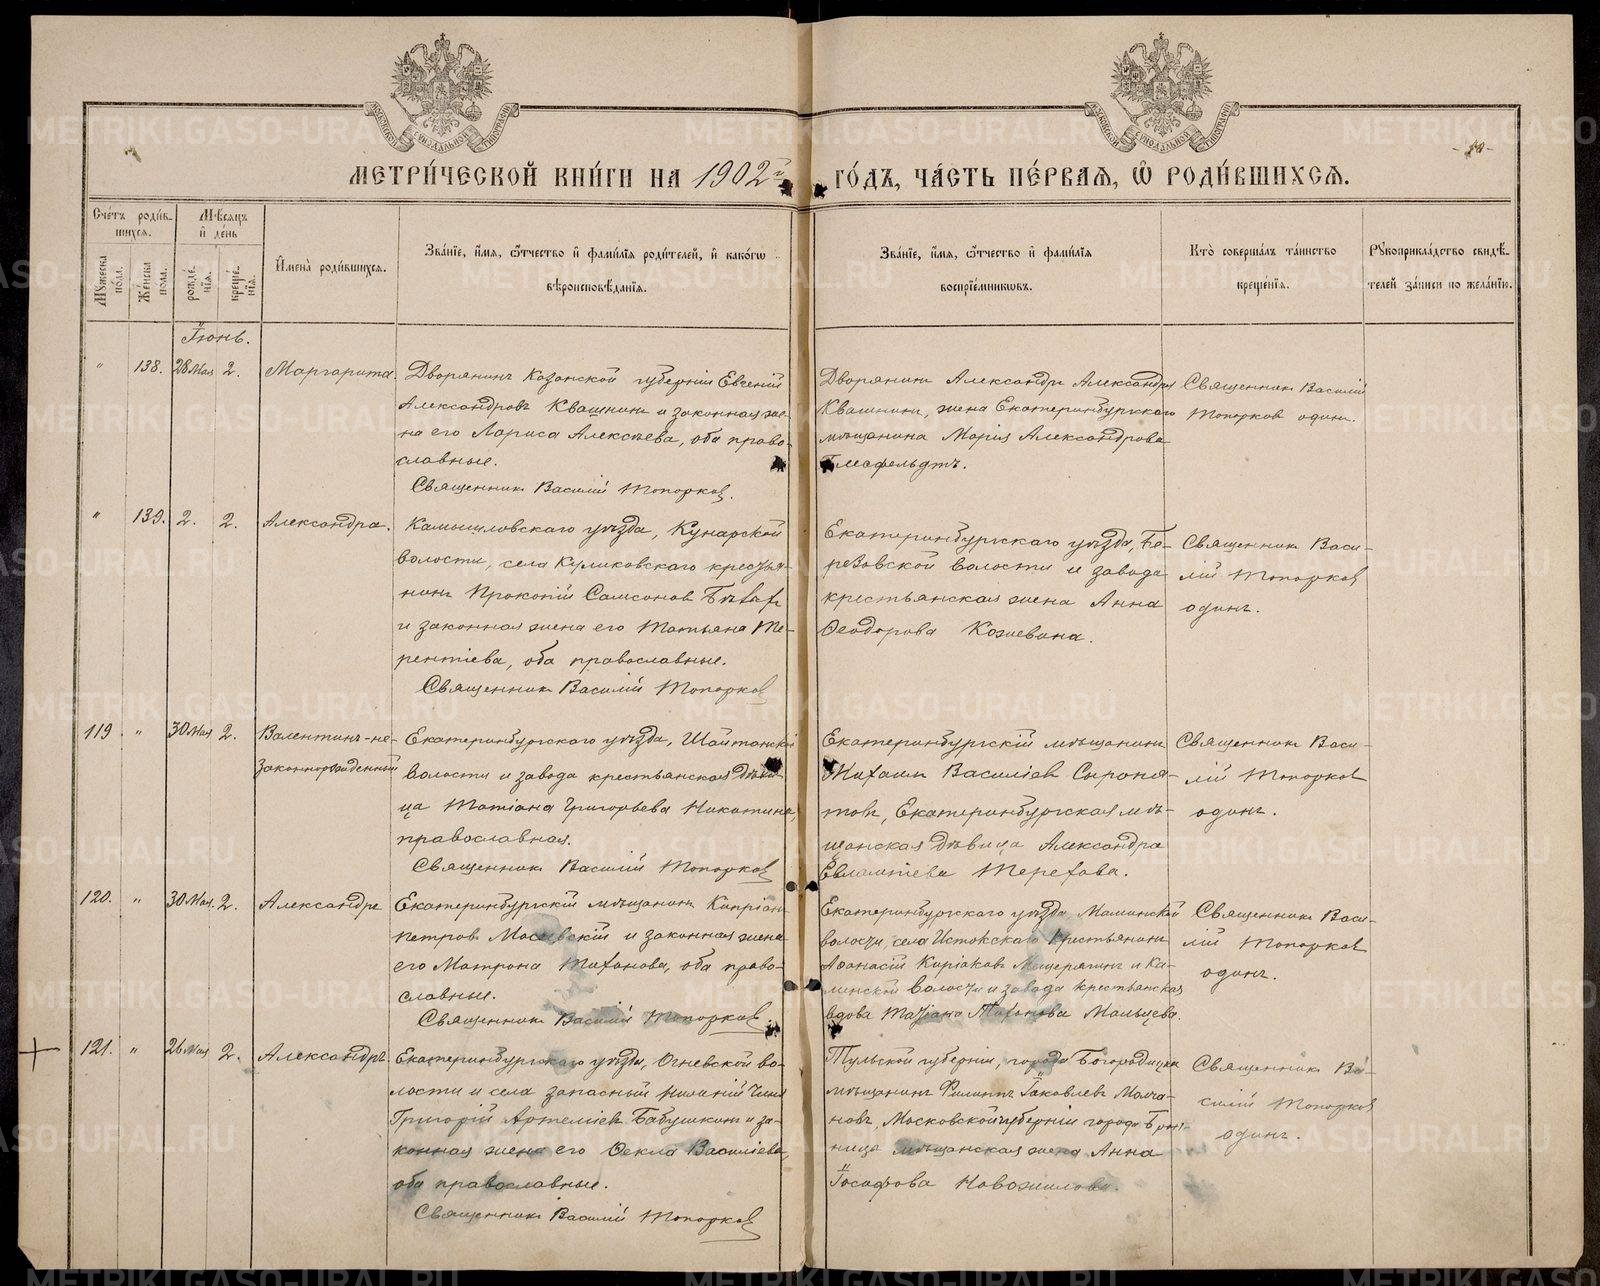 МЕТРИ́ЧЕСКОЙ КНИ́ГИ НА 1902й ГО́ДЪ, ЧА́СТЬ ПЕ́РВАЯ, Ѽ РОДИ́ВШИХСЯ.
Сче́тъ роди́в-
шихся.
Мѣ́сяцъ
и҆ де́нь
Му́жеска
по́ла.
Же́нска
по́ла.
рожде́-
нїя.
креще́-
нїя.
И҆мена̀ роди́вшихся.
Зва́нїе, и҆́мя, ѻ҆́тчество и҆ фами́лїа роди́телей, и҆ како́гѡ
вѣроисповѣ́данїя.
Зва́нїе, и҆́мя, ѻ҆́тчество и҆ фами́лїа
воспрїе́мникѡвъ.
Кто̀ соверша́лъ та́инство
креще́нїя.
Рꙋкоприкла́дство свидѣ́-
телей за́писи по жела́нїю.
Іюнь.
" 138. 28 Мая 2. Маргарита.
Дворянинъ Казанской губерніи Евгеній
Александровъ Квашнинъ и законная же-
на его Лариса Алексѣева, оба право-
славные.
Священникъ Василій Топорковъ.
Дворянинъ Александръ Александръ
Квашнинъ, жена Екатеринбургскаго
мѣщанина Марія Александрова
Священникъ Василій
Топорковъ одинъ.
" 139. 2. 2. Александра.
Камышловскаго уѣзда, Кунарской
волости, села Куликовскаго крестья-
нинъ Прокопій Самсоновъ
и законная жена его Татьяна Те-
рентіева, оба православные.
Священникъ Василій Топорковъ
Екатеринбургскаго уѣзда, Бе-
резовской волости и завода
крестьянская жена Анна
Ѳеодорова Кожевина.
Священникъ Васи-
лій Топорковъ
одинъ.
119 " 30 Мая 2. Валентинъ-не-
законнорожденный
Екатеринбургскаго уѣзда, Шайтанской
волости и завода крестьянская дѣви-
ца Татіана Григорьева Никитина,
православная.
Священникъ Василій Топорковъ
Екатеринбургскій мѣщанинъ
Михаилъ Василіевъ Сыропя-
товъ, Екатеринбургская мѣ-
щанская дѣвица Александра
Евлампіева Терехова.
Священникъ Васи-
лій Топорковъ
одинъ.
120. " 30 Мая. 2. Александръ
Екатеринбургскій мѣщанинъ Кипріанъ
Петровъ Мосеевскій и законная жена
его Матрона Тихонова, оба право-
славные.
Священникъ Василій Топорковъ.
Екатеринбургскаго уѣзда, Маминской
волости, села Истокскаго крестьянинъ
Аѳанасій Киріаковъ Мещерягинъ и Ка-
волости и завода крестьянская
вдова Татіана Тихонова Мальцева.
Священникъ Васи-
лій Топорковъ
одинъ.
121. " 26 Мая 2. Александръ
Екатеринбургскаго уѣзда, Огневской во-
лости и села запасный нижній чинъ
Григорій Артеміевъ Бабушкинъ и за-
конная жена его Ѳекла Василіева,
оба православные.
Священникъ Василій Топорковъ
Тульской губерніи, города Богородицка
мѣщанинъ Филиппъ Іаковлевъ Молча-
новъ, Московской губерніи города Брон-
ницъ мѣщанская жена Анна
Іосафова Новожилова.
Священникъ Ва-
силій Топорковъ
одинъ.
METRIKI.GASO-URAL.RU